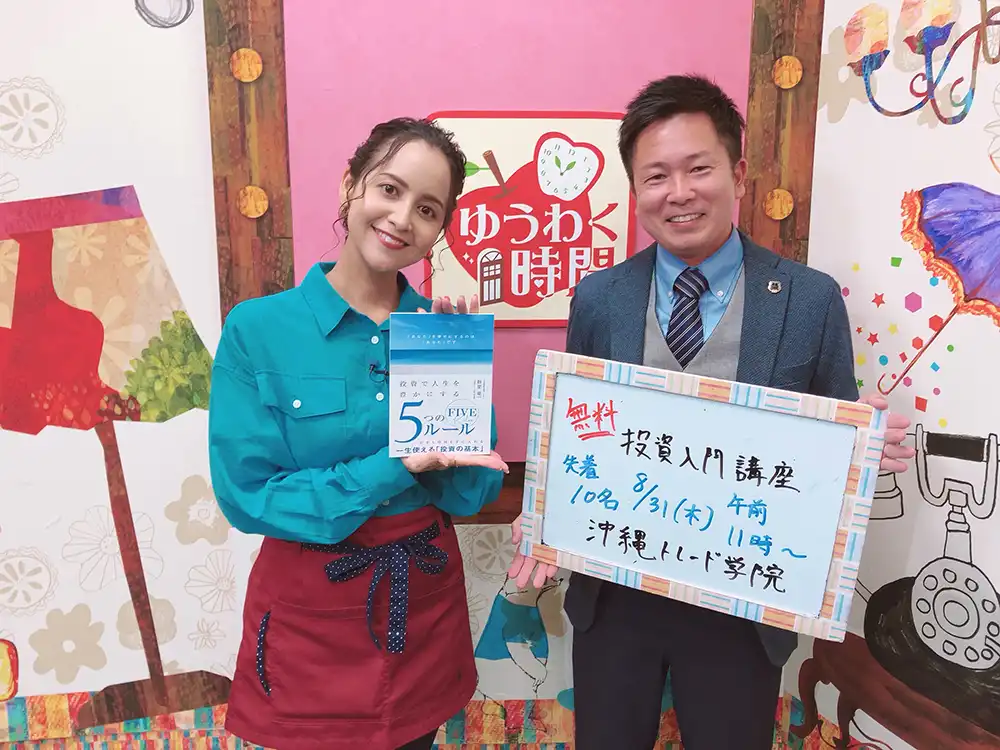 ゆうわく
時間
投資で人生を
豊かにする
5つの
FIVE
ルール
一生使える「投資の基本」
無料
投資入門講座
先着
10名
8/31(木)
午前
11時～
沖縄トレード学院